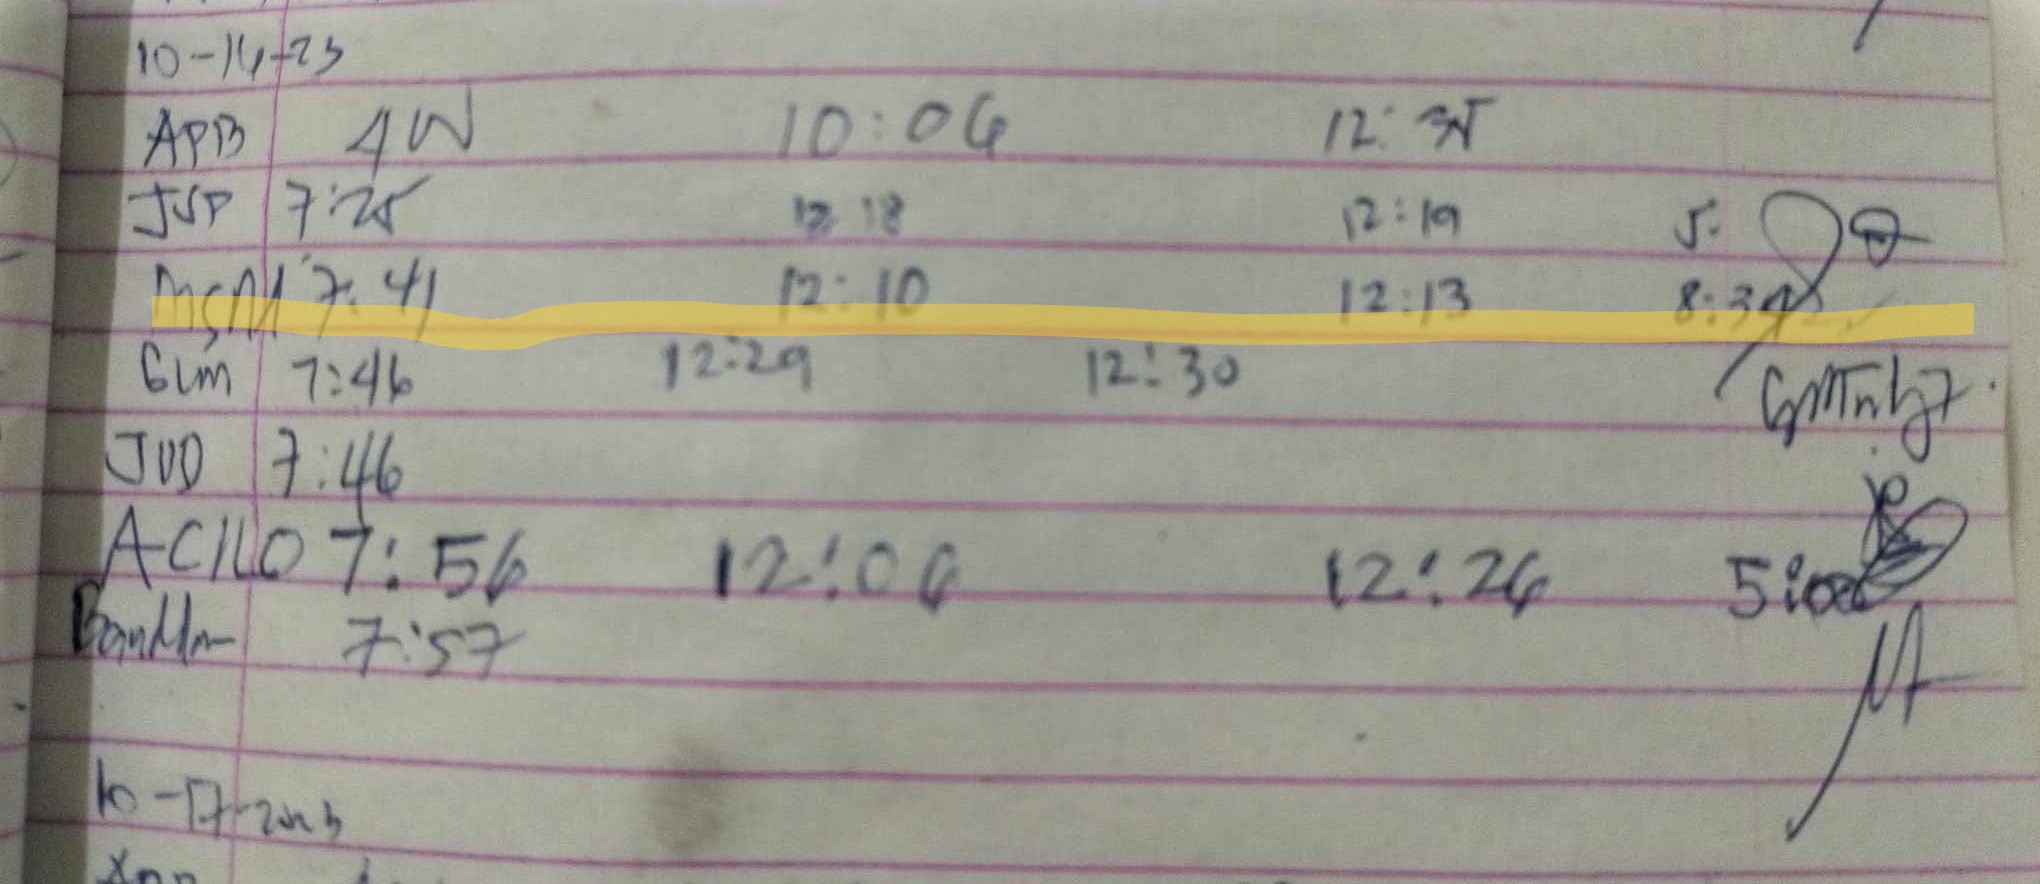 10-14-23
APB 4W 10:04 12:35
JSP 7:25 12 18 12:19 5:
MGM 7:41 12:10 12:13 8:34
GLM 7:46 12:29 12:30
JVD 7:46
ACILO 7:56 12:06 12:26 5:00
7:57
10-17-2023